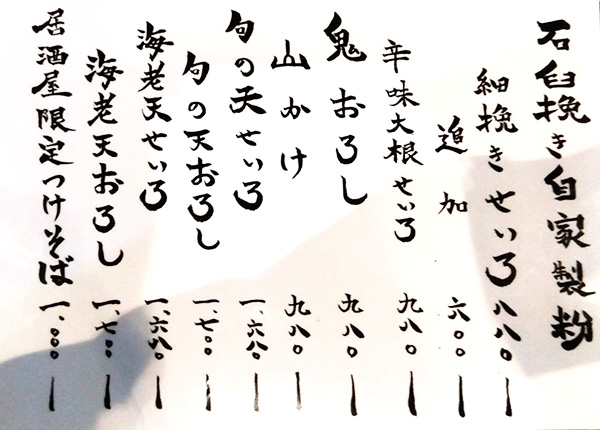 石臼挽き自家製粉
細挽きせいろ 八八〇
追加 六〇〇
辛味大根せいろ 九八〇
鬼おろし 九八〇
山かけ 九八〇
旬の天せいろ 一、六八〇
旬の天おろし 一、七〇〇
海老天せいろ 一、六八〇
海老天おろし 一、七〇〇
居酒屋限定つけそば 一、〇〇〇